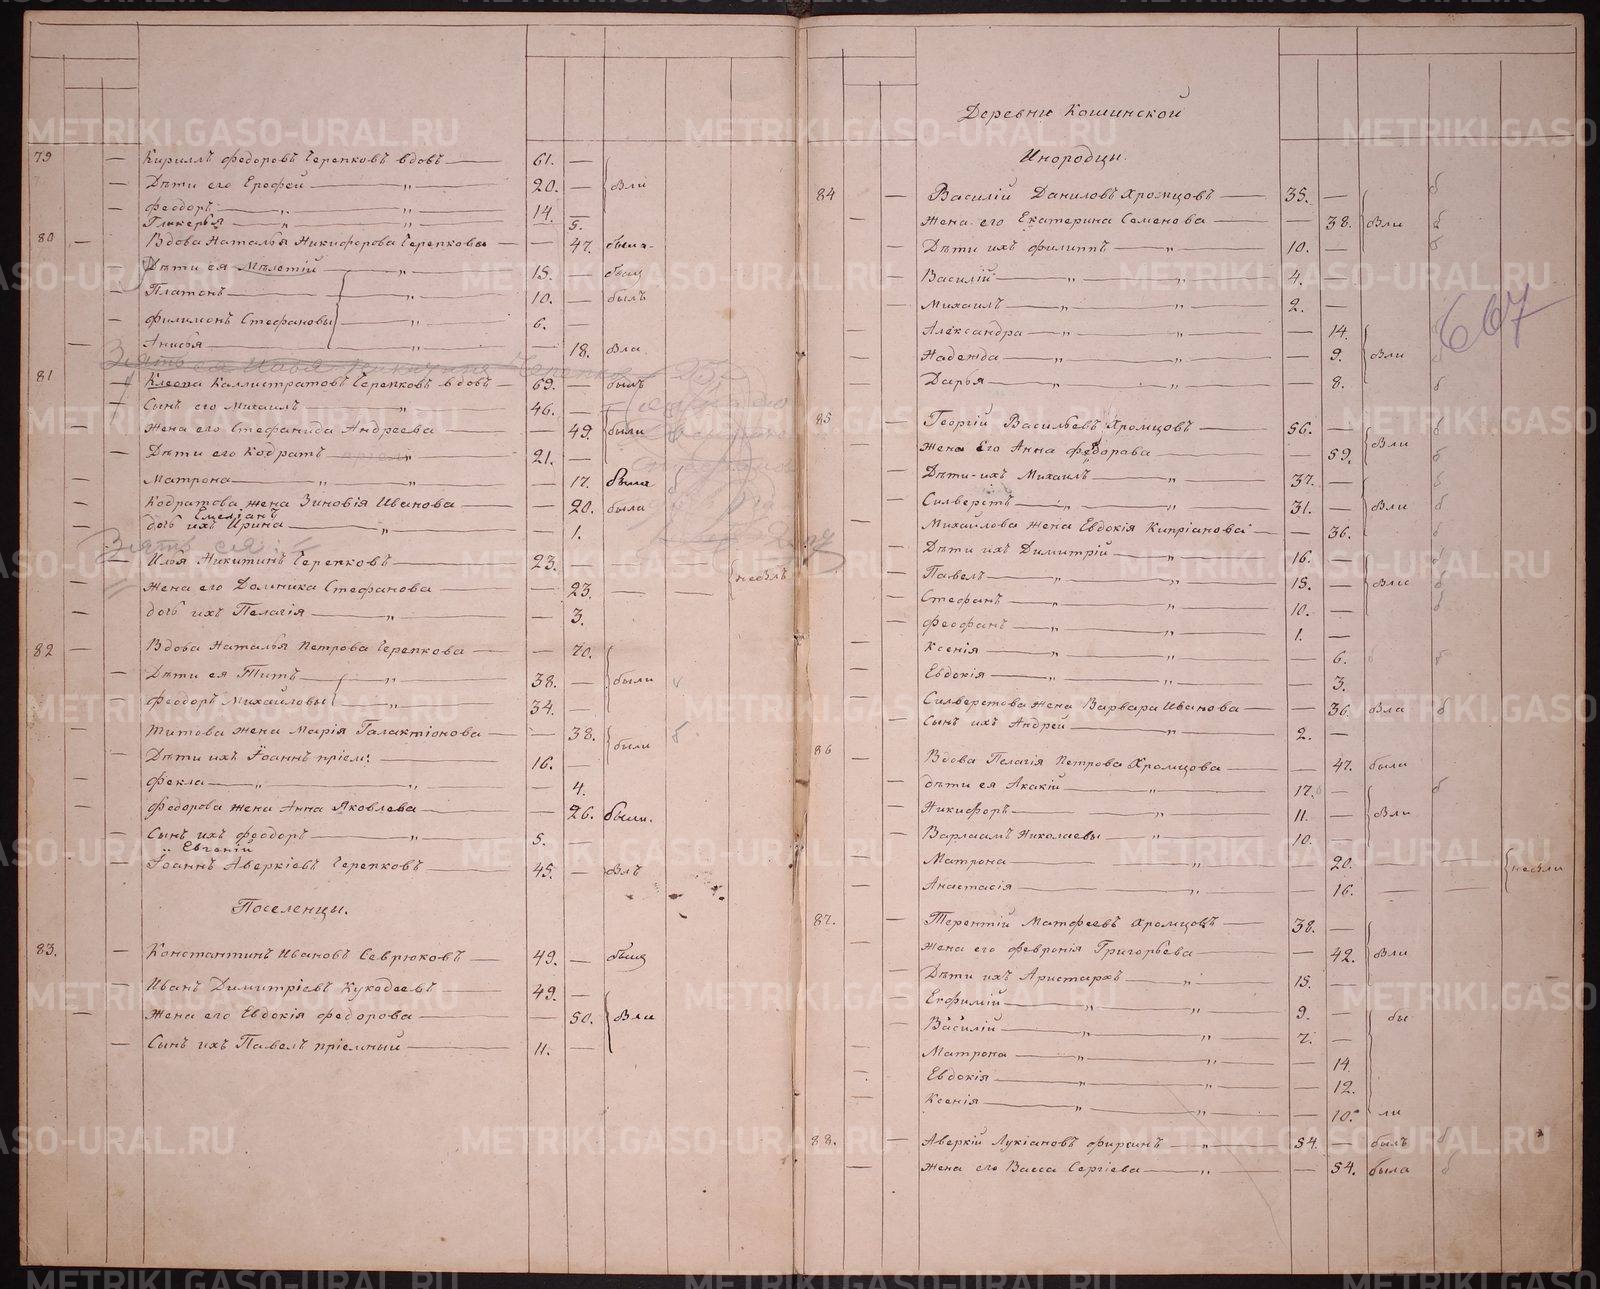 79 Кириллъ Федоровъ Черепковъ вдовъ 61. —
Дѣти его Ерофей „ 20. — были
Феодоръ „ „ 14. —
Гликерья „ „ — 5.
80 Вдова Наталья Никифорова Черепкова — 47. была
Дѣти ея Мелетій „ 15. — былъ
Платонъ „ 10. — былъ
Филимонъ Стефановы „ 6. —
Анисья „ — 18. бла
Зять ея Илья Никитинъ Черепков
81 Клеопа Каллистратовъ Черепковъ вдовъ 69. — былъ
Сынъ его Михаилъ „ 46. —
Жена его Стефанида Андреева — 49. были
Дѣти его Кодратъ 21. —
Матрона „ „ — 17. была
Кодратова жена Зиновія Иванова — 20. была
Емеліанъ
дочь ихъ Ирина „ — 1.
Зять ея
Илья Никитинъ Черепковъ 23. —
Жена его Домника Стефанова — 23. небылъ
дочь ихъ Пелагія „ — 3.
82 Вдова Наталья Петрова Черепкова — 70.
Дѣти ея Титъ „ 38. — были
Феодоръ Михайловы „ 34. —
Титова жена Марія Галактіонова — 38. б.
Дѣти ихъ Іоаннъ пріем: 16. — были
Фекла „ „ — 4.
Федорова жена Анна Яковлева — 26. были.
Сынъ ихъ Феодоръ „ 5. —
„ Евгеній
Іоаннъ Аверкіевъ Черепковъ 45. — блъ
Поселенцы.
83. Константинъ Ивановъ Севрюковъ 49. — былъ
Иванъ Димитріевъ Кукадеевъ 49. —
Жена его Евдокія Федорова — 50. бли
Сынъ ихъ Павелъ пріемный 11. —
Деревни Кошинской
Инородцы.
84 Василій Даниловъ Хромцовъ 35. — б
Жена его Екатерина Семенова — 38. бли б
Дѣти ихъ Филиппъ „ 10. — б
Василій „ „ 4.
Михаилъ „ „ 2.
Александра „ „ — 14.
Надежда „ „ — 9. бли
Дарья „ „ — 8. б
607
85 Георгій Васильевъ Хромцовъ 56. — б
Жена Его Анна Федорова — 59. бли б
Дѣти ихъ Михаилъ „ 37. — б
Силверстъ „ „ 31. — бли б
Михайлова жена Евдокія Кипріанова — 36.
Дѣти ихъ Димитрій „ 16. —
Павелъ „ „ 15. — бли б
Стефанъ „ „ 10. — б
Феофанъ „ „ 1. —
Ксенія „ „ — 6. б
Евдокія „ „ — 3.
Силверстова жена Варвара Иванова — 36. бла б
Сынъ ихъ Андрей 2. —
86 Вдова Пелагія Петрова Хромцова — 47. были
дѣти ея Акакій „ 17. — б
Никифоръ „ 11. — бли
Варлаамъ Николаевы „ 10.
Матрона „ — 20. небыли
Анастасія „ — 16.
87. Терентій Матфеевъ Хромцовъ 38. —
Жена его Февронія Григорьева — 42. бли
Дѣти ихъ Аристархъ „ 15. —
Евфимій „ „ 9. — бы
Василій „ „ 7. —
Матрона „ „ — 14.
Евдокія „ „ — 12.
Ксенія „ „ — 10. ли
88. Аверкій Лукіановъ Фирсинъ „ 54. — былъ б
Жена его Васса Сергіева „ — 54. была б
METRIKI.GASO-URAL.RU